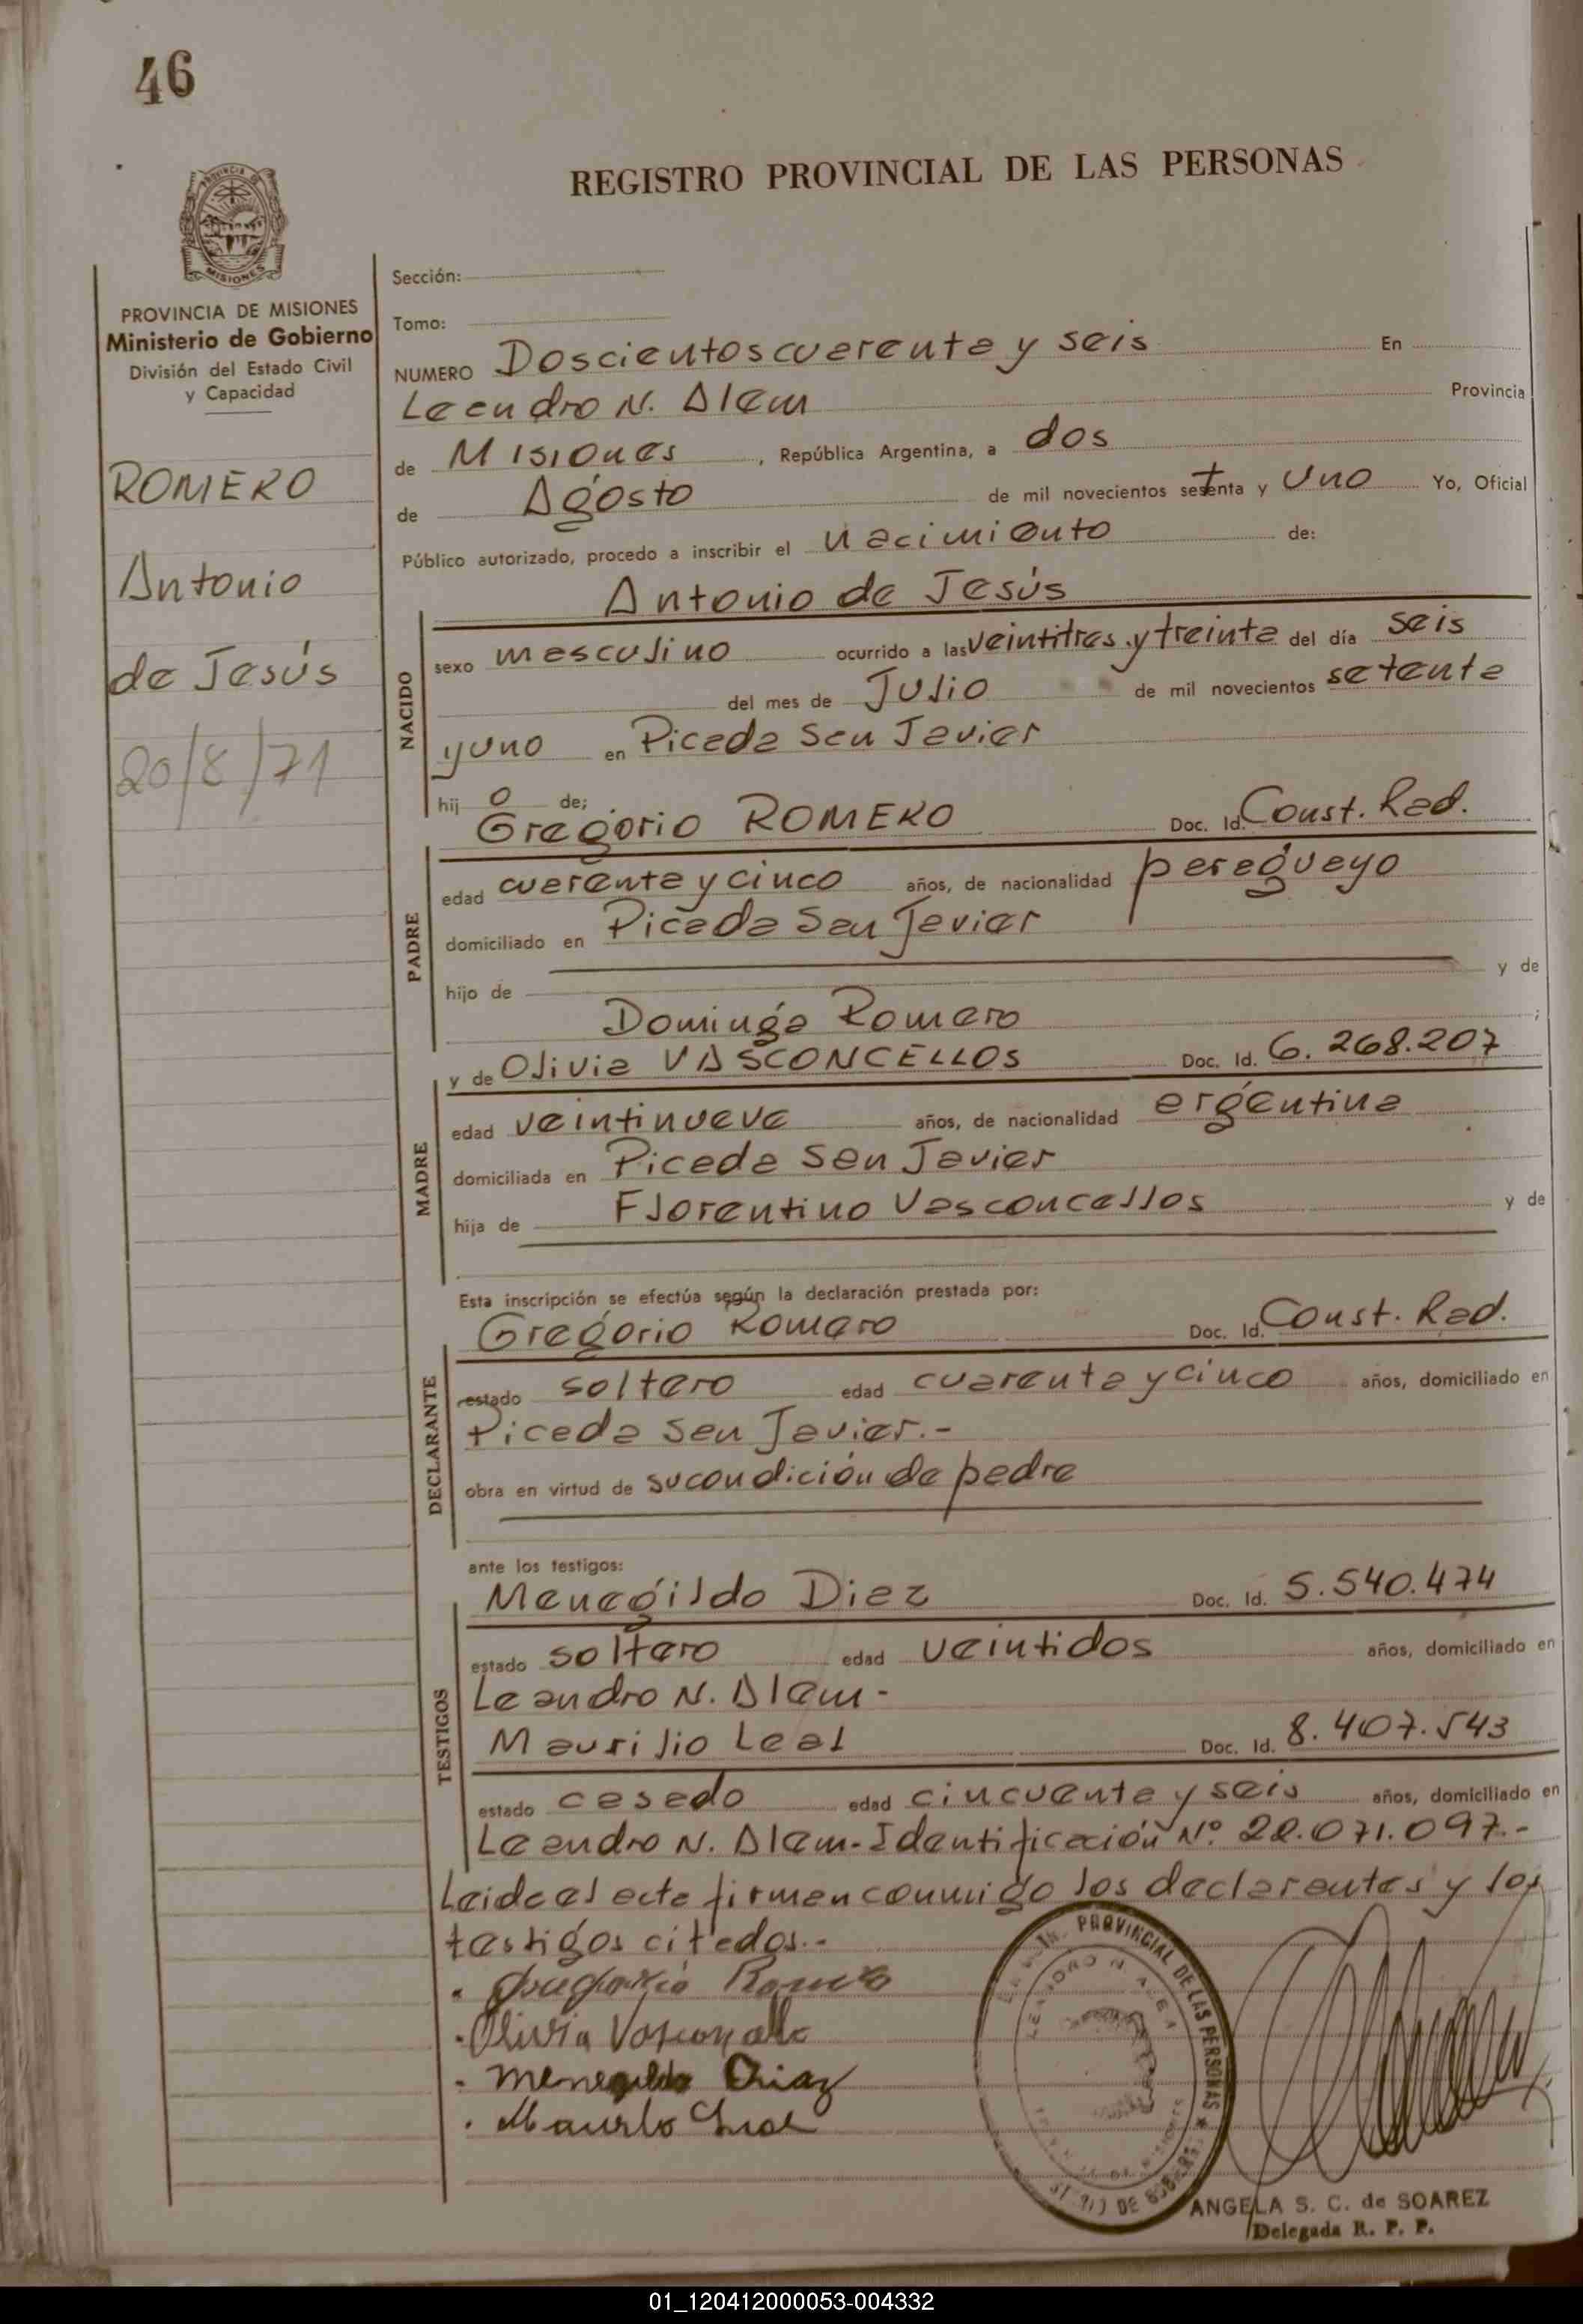 46
REGISTRO PROVINCIAL DE LAS PERSONAS
PROVINCIA DE MISIONES
Ministerio de Gobierno
División del Estado Civil
y Capacidad
ROMERO
Antonio
de Jesús
20/8/71
Sección:
Tomo:
NUMERO Doscientos cuarenta y seis En
Leandro N. Alem Provincia
de Misiones, República Argentina, a dos
de Agosto de mil novecientos setenta y uno Yo, Oficial
Público autorizado, procedo a inscribir el nacimiento de:
Antonio de Jesús
NACIDO
sexo masculino ocurrido a las veintitres y treinta del día seis
del mes de Julio de mil novecientos setenta
y uno en Picada San Javier
hijo de;
Gregorio ROMERO Doc. Id. Const. Rad.
PADRE
edad cuarenta y cinco años, de nacionalidad paraguayo
domiciliado en Picada San Javier
hijo de y de
Dominga Romero ;
y de Olivia VASCONCELLOS Doc. Id. 6.268.207
MADRE
edad veintinueve años, de nacionalidad argentina
domiciliada en Picada San Javier
hija de Florentino Vasconcellos y de
Esta inscripción se efectúa según la declaración prestada por:
Gregorio Romero Doc. Id. Const. Rad.
DECLARANTE
estado soltero edad cuarenta y cinco años, domiciliado en
Picada San Javier.-
obra en virtud de su condición de padre
ante los testigos:
Menegildo Diaz Doc. Id. 5.540.474
TESTIGOS
estado soltero edad veintidos años, domiciliado en
Leandro N. Alem-
Maurilio Leal Doc. Id. 8.407.543
estado casado edad cincuenta y seis años, domiciliado en
Leandro N. Alem-Identificación Nº 22.071.097.-
Leida el acta firman conmigo los declarantes y los
testigos citados.-
Gregorio Romero
Olivia
Diaz
PROVINCIAL DE LAS PERSONAS
LEANDRO N. ALEM
ANGELA S. C. de SOAREZ
Delegada R. P. P.
01_120412000053-004332